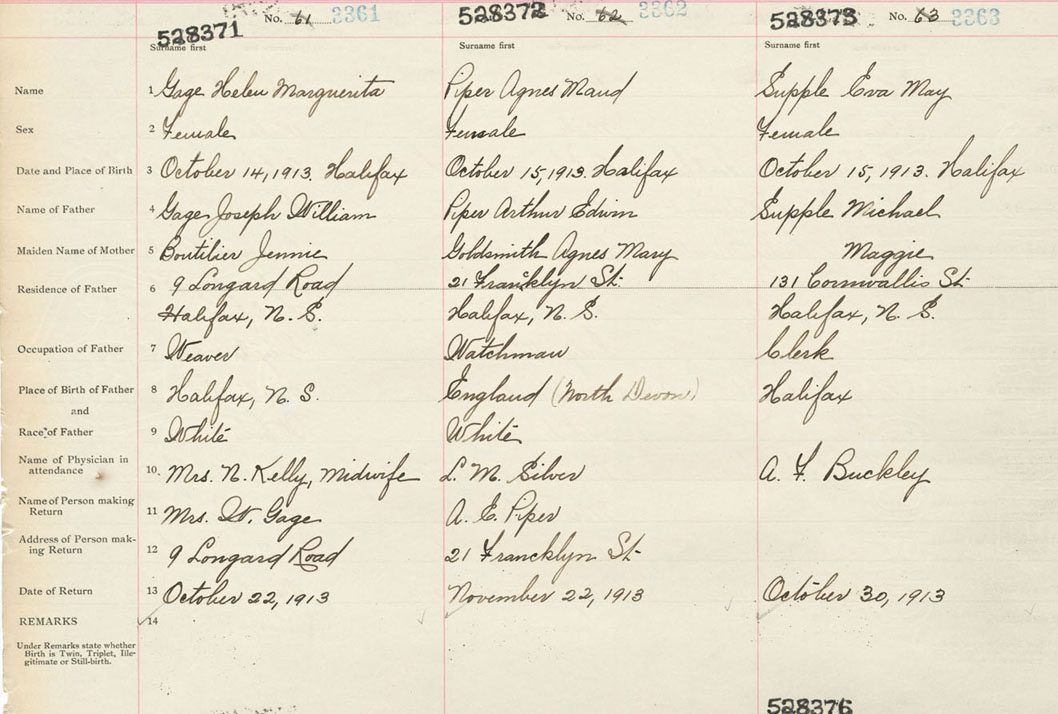 528371 No. 61 3361
528372 No. 62 3362
528373 No. 63 3363
Surname first
Surname first
Surname first
Name 1 Gage Helen Marguerita Piper Agnes Maud Supple Eva May
Sex 2 Female Female Female
Date and Place of Birth 3 October 14, 1913. Halifax October 15, 1913. Halifax October 15, 1913. Halifax
Name of Father 4 Gage Joseph William Piper Arthur Edwin Supple Michael
Maiden Name of Mother 5 Boutilier Jennie Goldsmith Agnes Mary Maggie
Residence of Father 6 9 Longard Road 21 Francklyn St. 131 Cornwallis St.
Halifax, N. S. Halifax, N. S. Halifax, N. S.
Occupation of Father 7 Weaver Watchman Clerk
Place of Birth of Father 8 Halifax, N. S. England (North Devon) Halifax
and
Race of Father 9 White White
Name of Physician in
attendance 10. Mrs. N. Kelly, Midwife L. M. Silver A. F. Buckley
Name of Person making
Return 11 Mrs. W. Gage A. E. Piper
Address of Person mak-
ing Return 12 9 Longard Road 21 Francklyn St.
Date of Return 13 October 22, 1913 November 22, 1913 October 30, 1913
REMARKS 14
Under Remarks state whether
Birth is Twin, Triplet, Ille-
gitimate or Still-birth.
528376